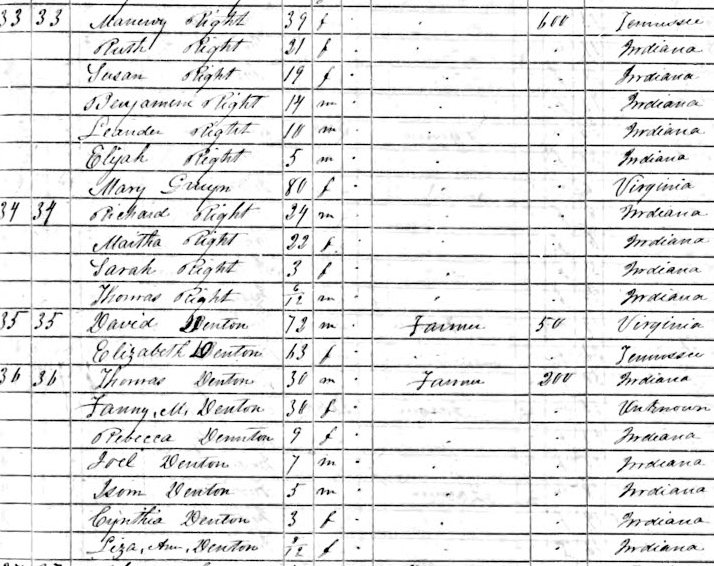 33 33 Manervy Right 39 f 600 Tennessee
Ruth Right 21 f Indiana
Susan Right 19 f Indiana
Benjamine Right 14 m Indiana
Leander Right 10 m Indiana
Elijah Right 5 m Indiana
Mary 80 f Virginia
34 34 Richard Right 24 m Indiana
Martha Right 22 f Indiana
Sarah Right 3 f Indiana
Thomas Right 6/12 m Indiana
35 35 David Denton 72 m Farmer 50 Virginia
Elizabeth Denton 63 f Tennessee
36 36 Thomas Denton 30 m Farmer 200 Indiana
Fanny, M, Denton 30 f Unknown
Rebecca Dennton 9 f Indiana
Joel Denton 7 m Indiana
Isom Denton 5 m Indiana
Cynthia Denton 3 f Indiana
Liza, Ann, Denton f Indiana